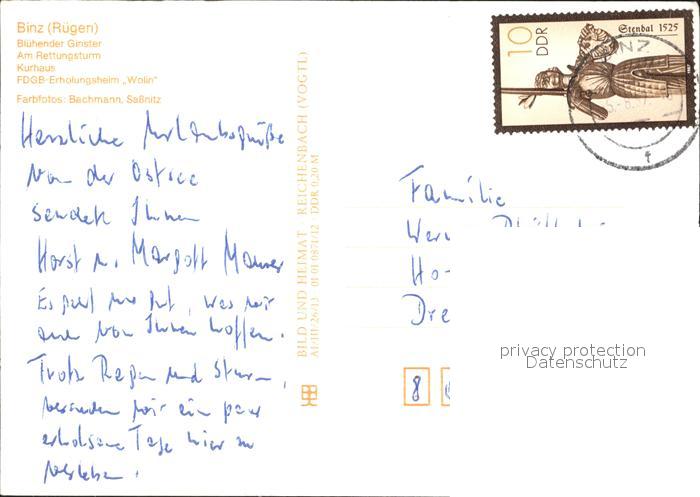 Binz (Rügen)
Blühender Ginster
Am Rettungsturm
Kurhaus
FDGB-Erholungsheim „Wolin"
Farbfotos: Bachmann, Saßnitz
Herzliche Urlaubsgrüße
von der Ostsee
sendet Ihnen
Horst u. Margott
Es geht uns gut, was wir
auch von Ihnen hoffen.
Trotz Regen und Sturm,
wir ein paar
erholsame Tage hier zu
verleben.
BILD UND HEIMAT REICHENBACH (VOGTL)
A1/III/26/13 01 01 0871/12 DDR 0,20 M
10
DDR
Stendal 1525
Familie
Ho-
Dre
8
privacy protection
Datenschutz